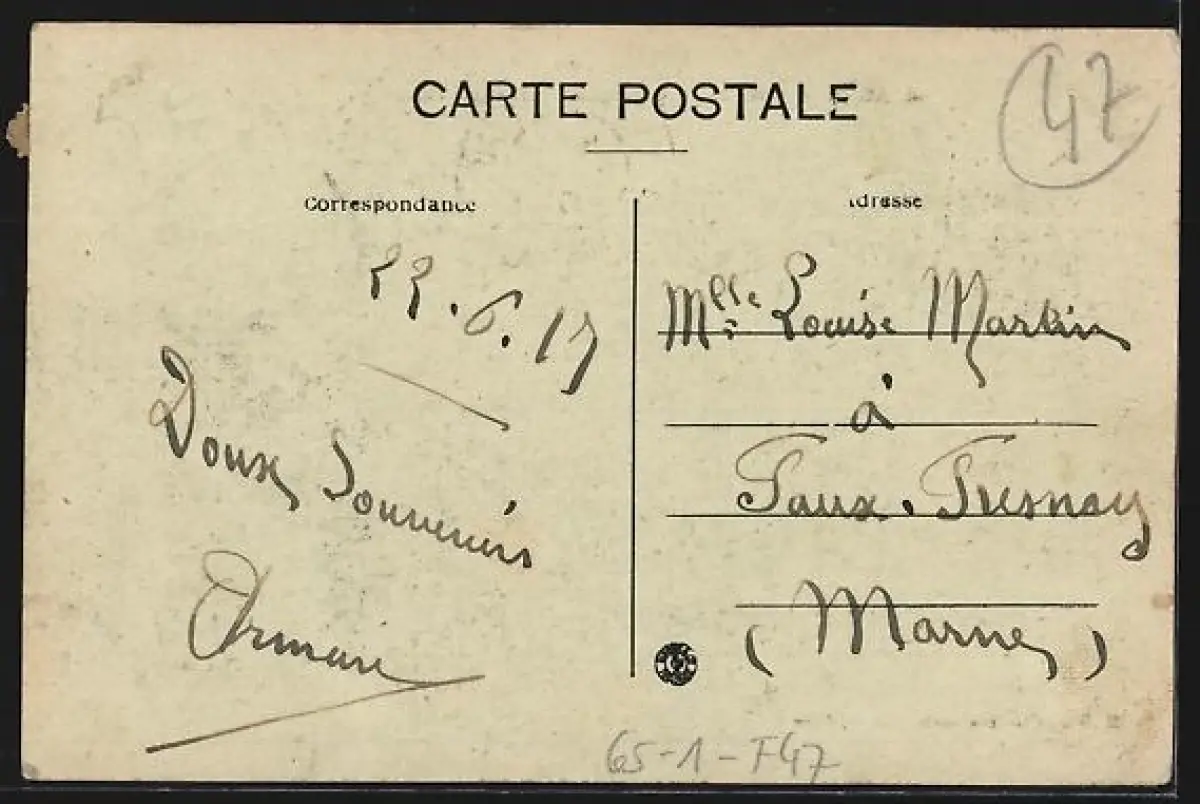 CARTE POSTALE
47
Correspondance
Adresse
22.6.17
Doux Souvenirs
Mlle Louise Martin
à
Faux-Fresnay
(Marne)
65-1-F47